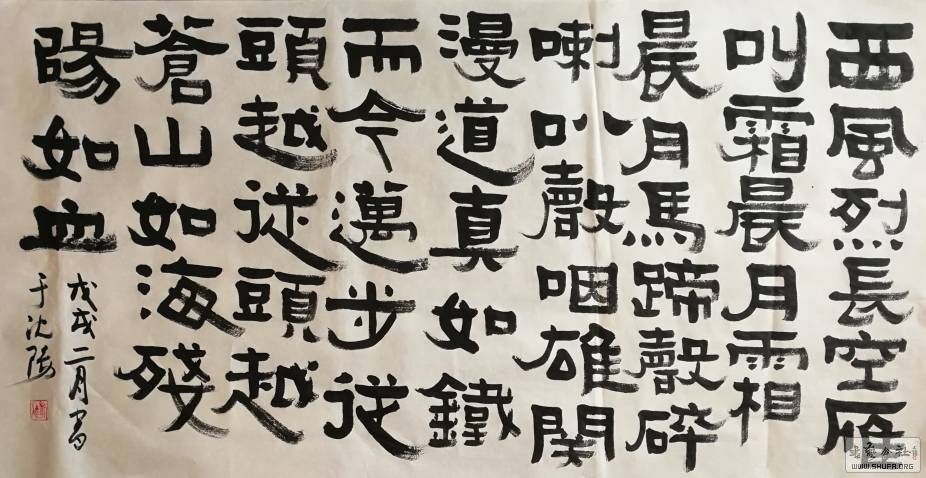 西風烈長空雁
叫霜晨月霜
晨月馬蹄聲碎
喇叭聲咽雄關
漫道真如鐵
而今邁步從
頭越從頭越
蒼山如海殘
陽如血
戊戌二月書
于沈陽
WWW.SHUFA.ORG